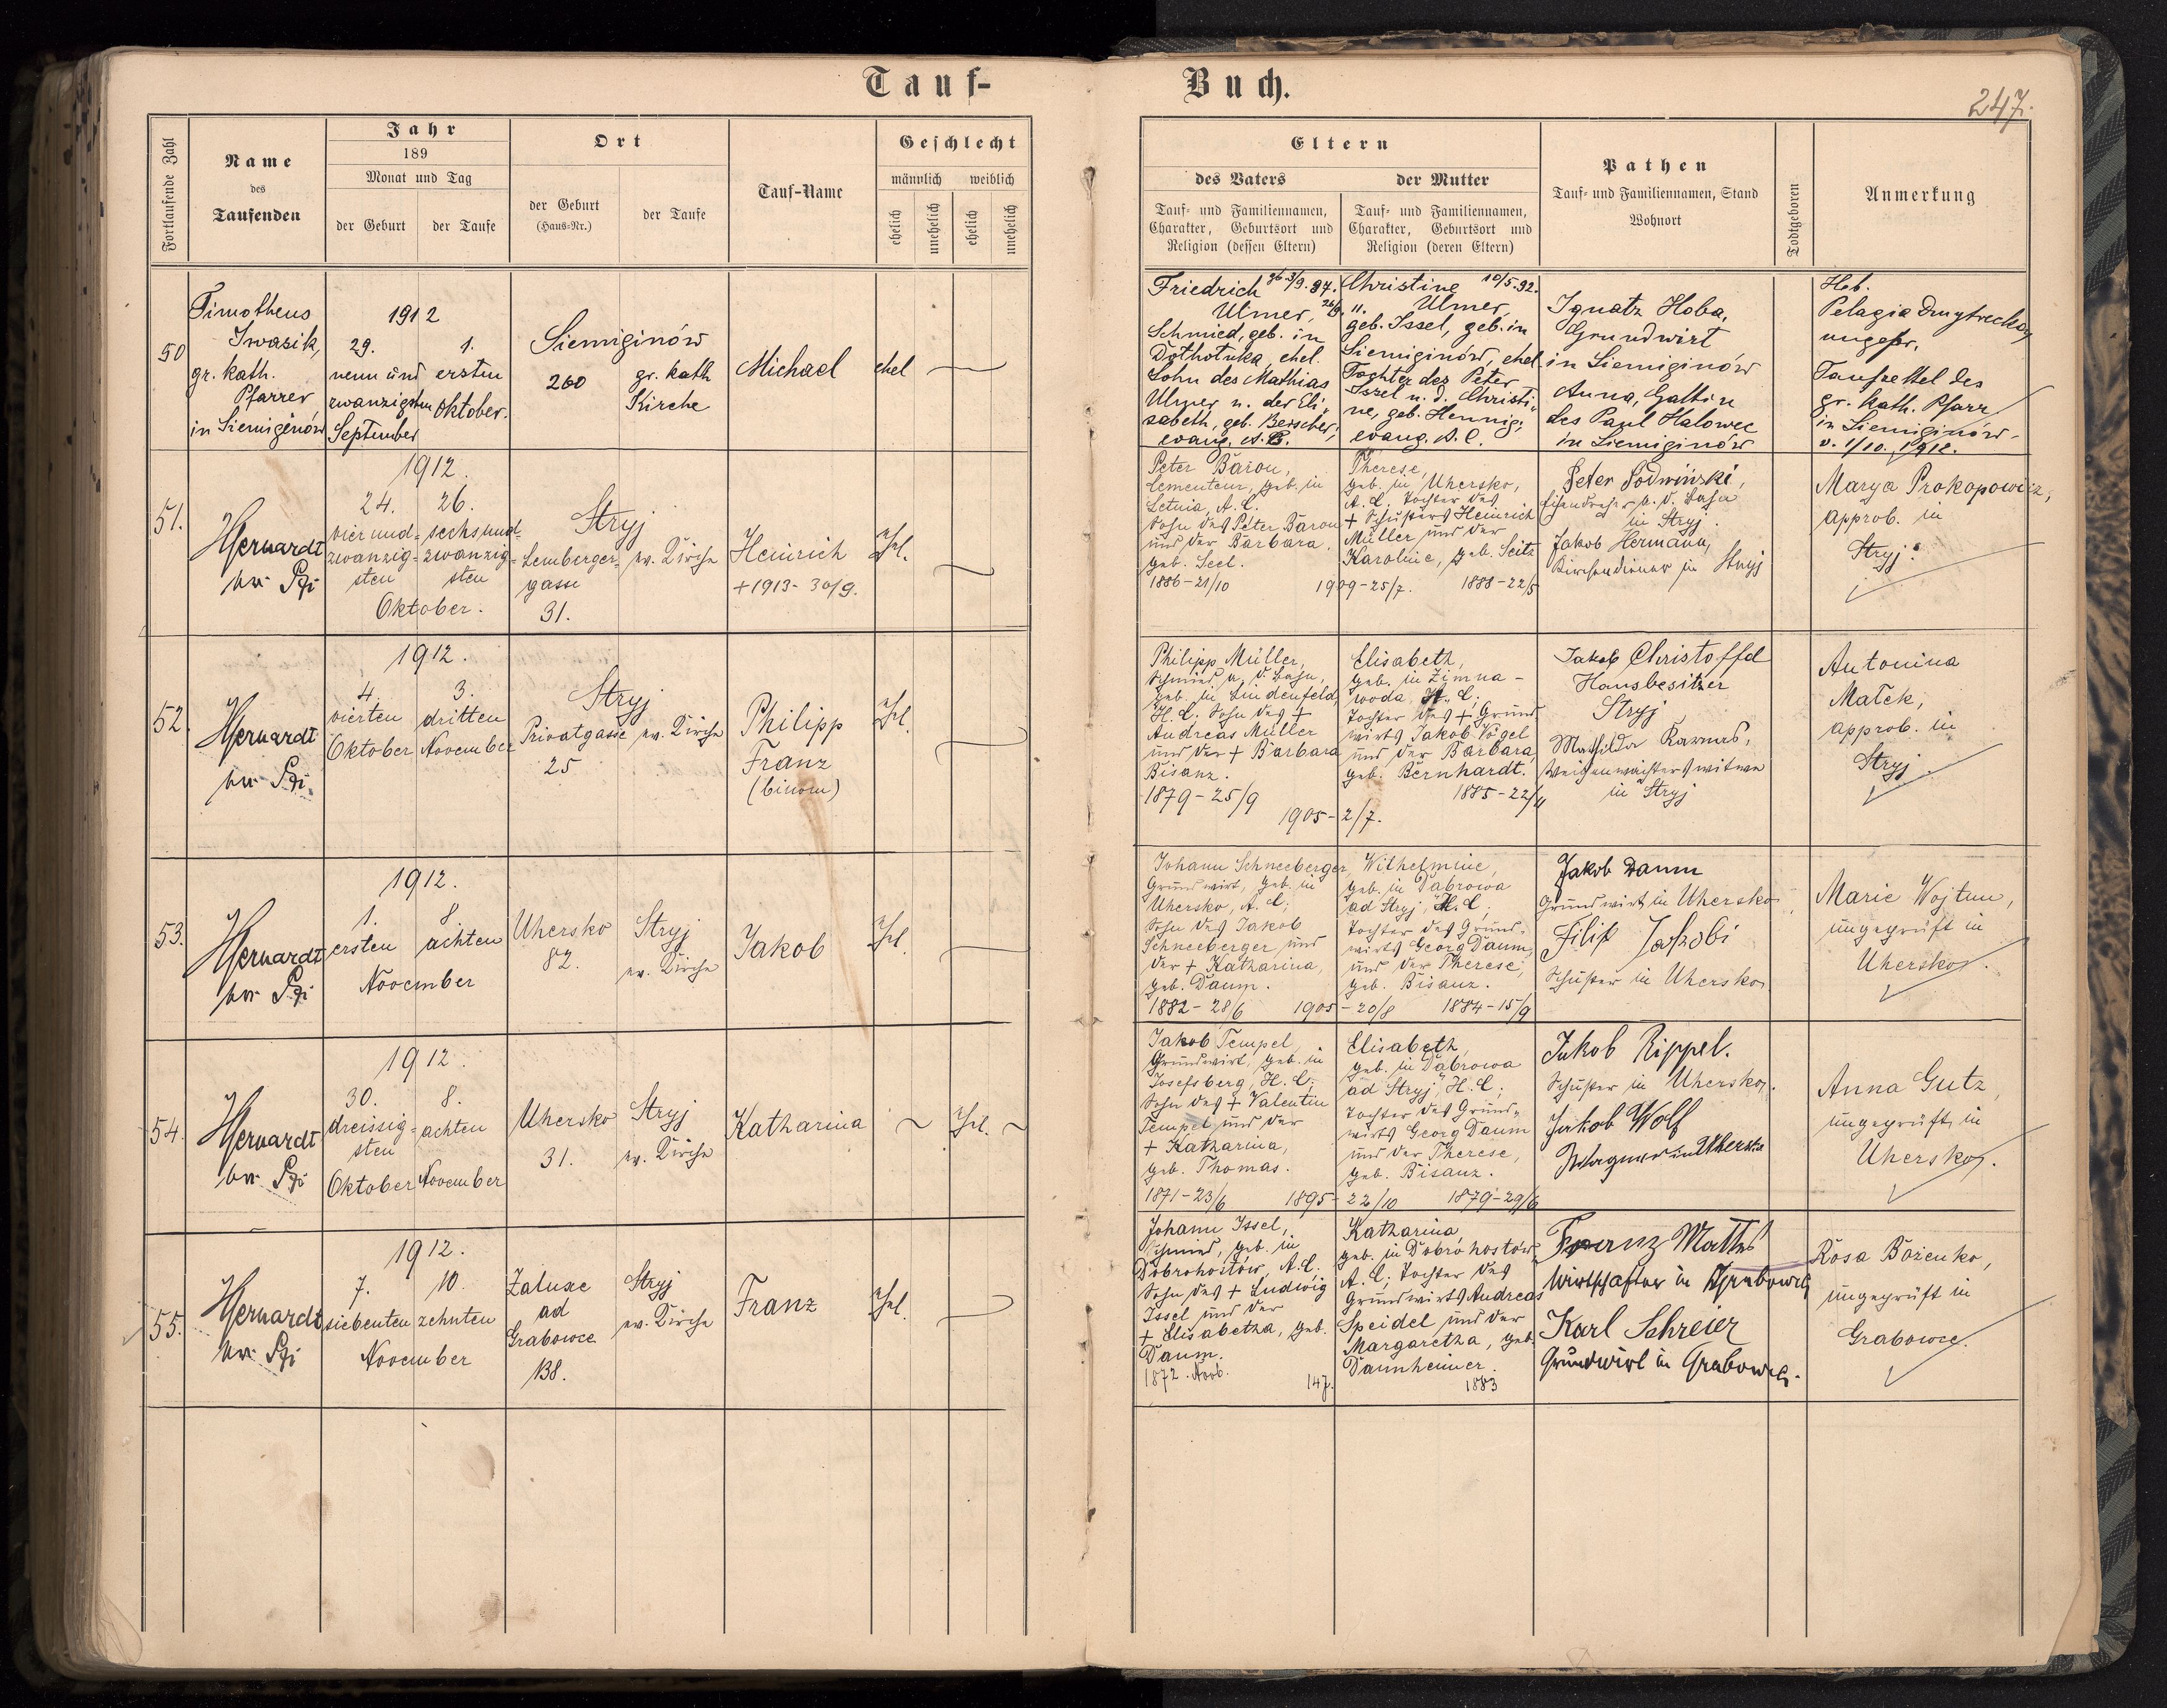 Tauf-
Buch.
247.
Fortlaufende Zahl
Name
des
Taufenden
Jahr
189
Monat und Tag
der Geburt
der Taufe
Ort
der Geburt
(Haus-Nr.)
der Taufe
Tauf-Name
Geschlecht
männlich
weiblich
ehelich
unehelich
ehelich
unehelich
Eltern
des Vaters
der Mutter
Tauf- und Familiennamen,
Charakter, Geburtsort und
Religion (dessen Eltern)
Tauf- und Familiennamen,
Charakter, Geburtsort und
Religion (deren Eltern)
Pathen
Tauf- und Familiennamen, Stand
Wohnort
Todtgeboren
Anmerkung
50
Timotheus
Iwasik,
gr. kath.
Pfarrer
in Siemiginów
1912
29.
neun und
zwanzigsten
September
1.
ersten
Oktober.
Siemiginów
260
gr. kath
Kirche
Michael
ehel
Friedrich gb. 3/9. 87.
Ulmer,
Schmied, geb. in
ehel.
Sohn des Mathias
Ulmer u. der Eli-
sabeth, geb. Berscher,
evang. A. B.
Christine 10/5. 92.
Ulmer,
geb. Issel, geb. in
Siemiginów, ehel
Tochter des Peter
Issel u. d. Christi-
ne, geb. Hennig;
evang. A. C.
Ignatz Hoba,
Grundwirt
in Siemiginów
Anna, Gattin
des Paul Halowec
in Siemiginów
Heb.
Pelagia
ungepr.
Taufzettel des
gr. kath. Pfarr
in Siemiginów
v. 1/10. 1912.
51.
Hernardt
1912.
24.
vier und-
zwanzig-
sten
26.
sechsund-
zwanzig-
sten
Oktober.
Stryj
Lemberger-
gasse
31.
ev. Kirche
Heinrich
+ 1913 - 30/9.
Ehl.
Peter Baron,
Cementeur, geb. in
Letnia, A. C.
Sohn des Peter Baron
und der Barbara,
geb. Seel.
1886 - 21/10
1909 - 25/7.
Therese,
geb. in Uhersko,
A. C. Tochter des
+ Schusters Heinrich
Müller und der
Karoline, geb. Seitz
1888 - 22/5
Peter Sodwiński,
Eisendreher a. d. Bahn
in Stryj.
Jakob Hermann,
Kirchendiener in Stryj
Marya Prokopowicz,
approb. in
Stryj.
52.
Hernardt
1912.
4.
vierten
Oktober
3.
dritten
November
Stryj
Privatgasse
25
ev. Kirche
Philipp
Franz
(binom)
Ehl.
Philipp Müller,
Schmied a. d. Bahn,
geb. in Lindenfeld,
H. C. Sohn des +
Andreas Müller
und der + Barbara
Bisanz.
1879 - 25/9
1905 - 2/7.
Elisabeth,
geb. in Zimna-
woda H. C.;
Tochter des + Grund-
wirts Jakob Vogel
und der Barbara,
geb. Bernhardt.
1885 - 22/11
Jakob Christoffel
Hausbesitzer
Stryj
Mathilda Karnas,
in Stryj
Antonina
Małek,
approb. in
Stryj.
53.
Hernardt
1912.
1.
ersten
8.
achten
November
Uhersko
82.
Stryj
ev. Kirche
Jakob
Ehl.
Johann Schneeberger,
Grundwirt, geb. in
Uhersko, A. C;
Sohn des Jakob
Schneeberger und
der + Katharina,
geb. Daum.
1882 - 28/6
1905 - 20/8
Wilhelmine,
geb. in Dabrowa
ad Stryj, H. C.;
Tochter des Grund-
wirts Georg Daum,
und der Therese,
geb. Bisanz.
1884 - 15/9
Jakob Daum
Grundwirt in Uhersko
Filip Jakobi
Schuster in Uhersko
Marie Wojtun,
ungeprüft in
Uhersko.
54.
Hernardt
1912.
30.
dreissig-
sten
Oktober
8.
achten
November
Uhersko
31.
Stryj
ev. Kirche
Katharina
Ehl.
Jakob Tempel,
Grundwirt, geb. in
Josefsberg, H. C;
Sohn des + Valentin
Tempel und der
+ Katharina,
geb. Thomas.
1871 - 23/6
1895 - 22/10
Elisabeth,
geb. in Dabrowa
ad Stryj H. C;
Tochter des Grund-
wirts Georg Daum
und der Therese,
geb. Bisanz.
1879 - 29/6
Jakob Rippel.
Schuster in Uhersko.
Jakob Wolf
Wagner in Uhersko
Anna Gutz,
ungeprüft, in
Uhersko.
55.
Hernardt
1912.
7.
siebenten
10.
zehnten
November
Zaluze
ad
Grabowce
138.
Stryj
ev. Kirche
Franz
Ehl.
Johann Issel,
Schmied, geb. in
Dobrohostów, A. C.
Sohn des + Ludwig
Issel und der
+ Elisabetha, geb.
Daum.
1872. Novb.
147.
Katharina,
geb. in Dobrohostów,
A. C; Tochter des
Grundwirts Andreas
Speidel und der
Margaretha, geb.
Dannheimer.
1883
Franz Mattes
Wirtschafter in Grabowce
Karl Schreier
Grundwirt in Grabowce.
Rosa Bozenko,
ungeprüft in
Grabowce.